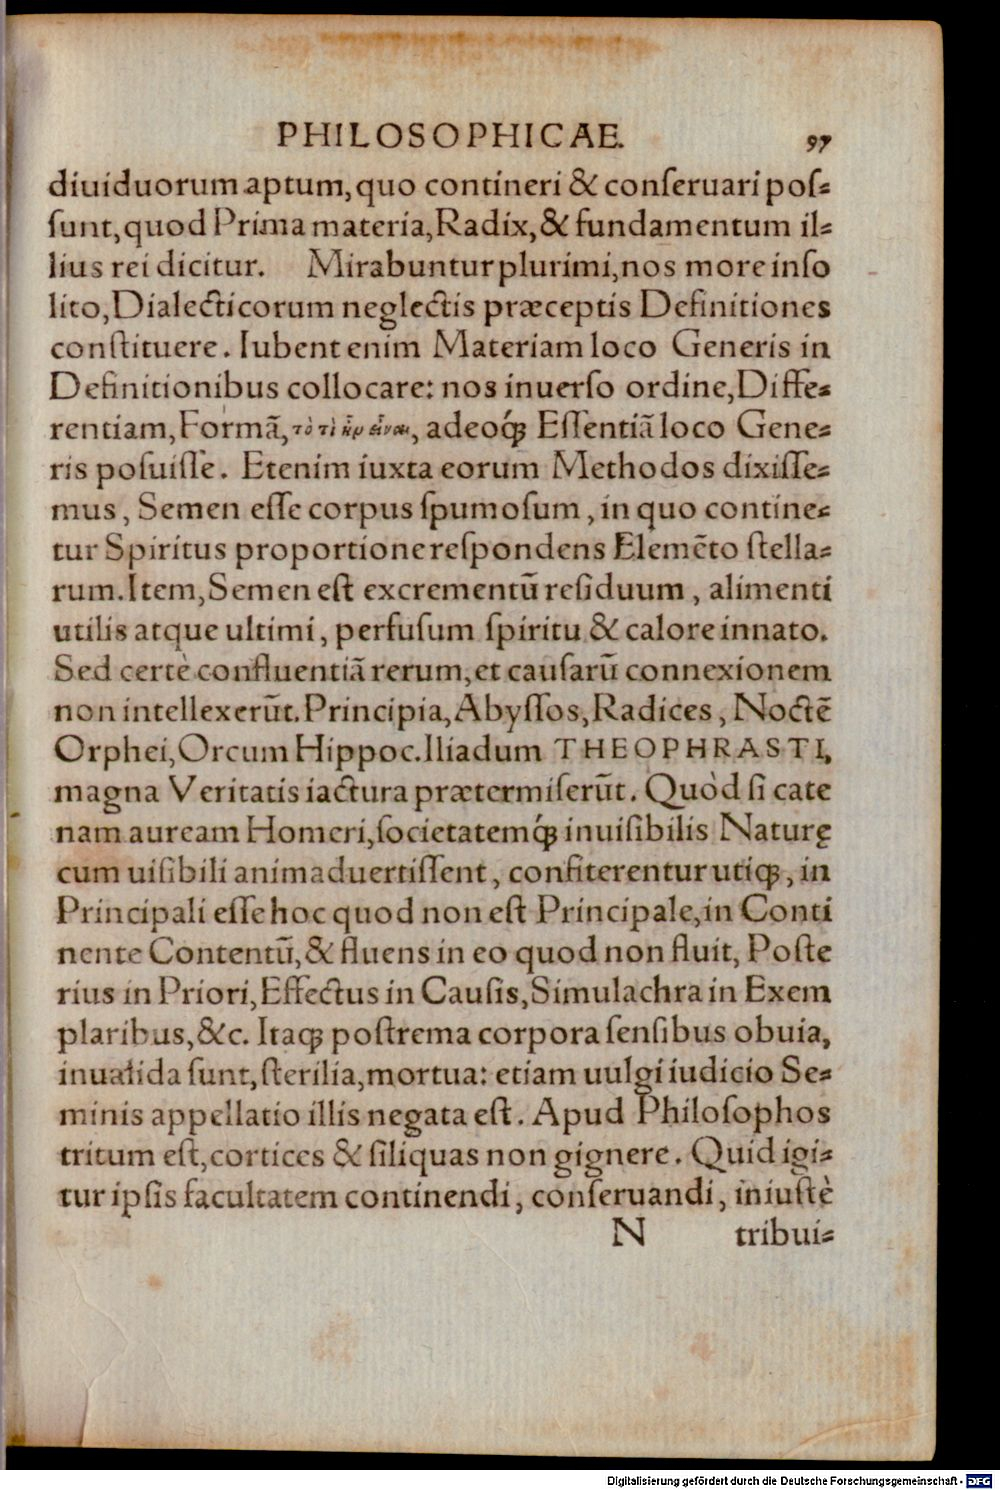 PHILOSOPHICAE. 97
diuiduorum aptum, quo contineri & conſeruari poſ⸗
ſunt, quod Prima materia, Radix, & fundamentum il⸗
lius rei dicitur. Mirabuntur plurimi, nos more inſo
lito, Dialecticorum neglectis præceptis Definitiones
conſtituere. Iubent enim Materiam loco Generis in
Definitionibus collocare: nos inuerſo ordine, Diffe⸗
rentiam, Formã, τὸ τὶ ἦν εἶναι, adeoq́; Eſſentiã loco Gene⸗
ris poſuiſſe. Etenim iuxta eorum Methodos dixiſſe⸗
mus, Semen eſſe corpus ſpumoſum, in quo contine⸗
tur Spiritus proportione reſpondens Elemẽto ſtella⸗
rum. Item, Semen eſt excrementũ reſiduum, alimenti
utilis atque ultimi, perfuſum ſpiritu & calore innato.
Sed certè confluentiã rerum, et cauſarũ connexionem
non intellexerũt. Principia, Abyſſos, Radices, Noctẽ
Orphei, Orcum Hippoc. Iliadum THEOPHRASTI,
magna Veritatis iactura prætermiſerũt. Quòd ſi cate
nam auream Homeri, ſocietatemq́; inuiſibilis Naturę
cum uiſibili animaduertiſſent, confiterentur utiq;, in
Principali eſſe hoc quod non eſt Principale, in Conti
nente Contentũ, & fluens in eo quod non fluit, Poſte
rius in Priori, Effectus in Cauſis, Simulachra in Exem
plaribus, &c. Itaq; poſtrema corpora ſenſibus obuia,
inualida ſunt, ſterilia, mortua: etiam uulgi iudicio Se⸗
minis appellatio illis negata eſt. Apud Philoſophos
tritum eſt, cortices & ſiliquas non gignere. Quid igi⸗
tur ipſis facultatem continendi, conſeruandi, iniuſtè
N tribui⸗
Digitalisierung gefördert durch die Deutsche Forschungsgemeinschaft - DFG